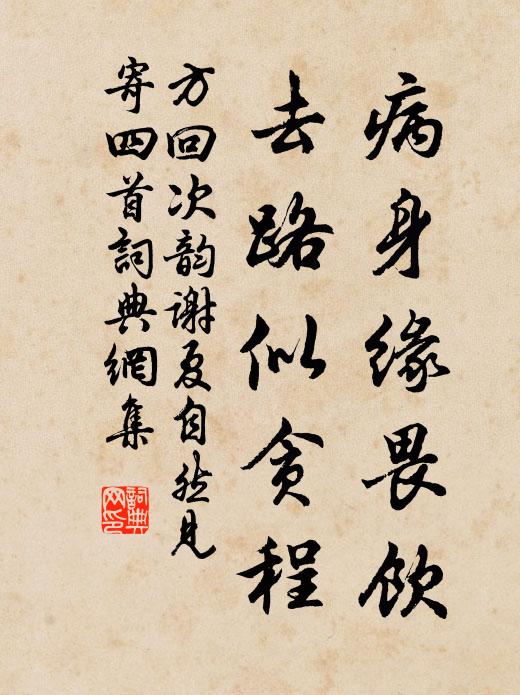 病身缘畏饮
去路似贪程
方回次韵谢夏自然见
寄四首詞典網集
詞典
网印